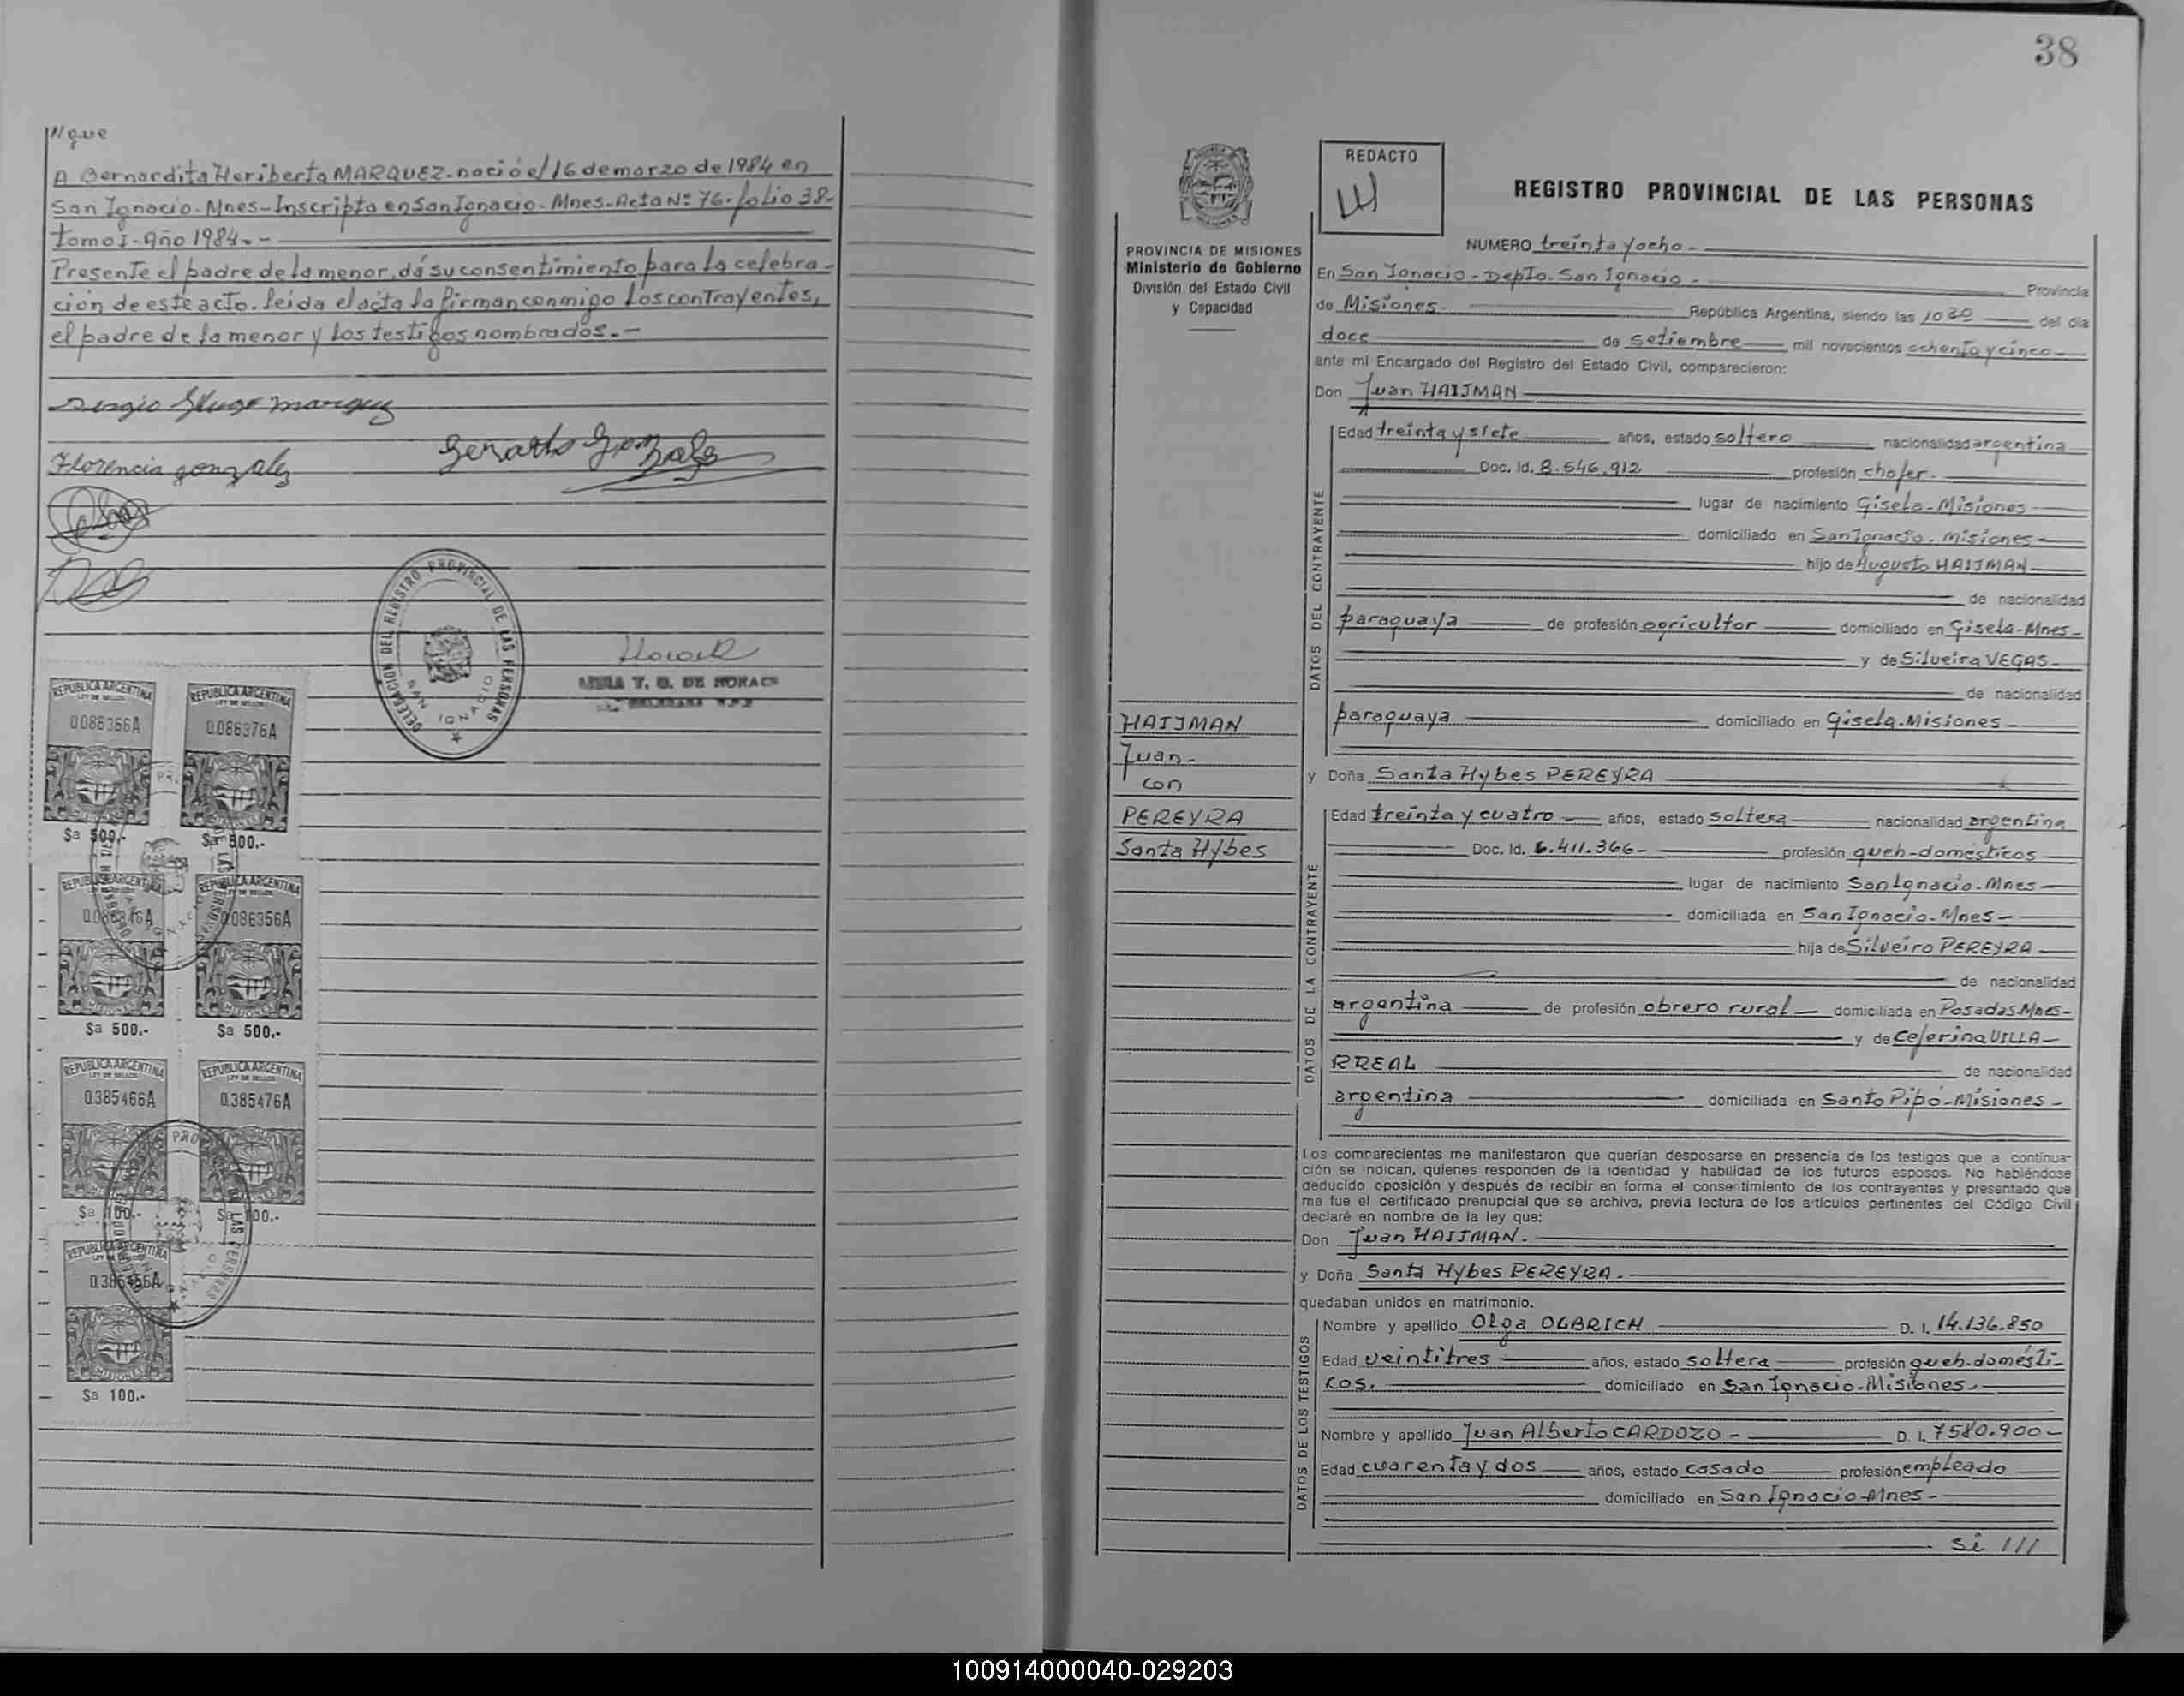 38
//que
A Bernardita Heriberta MARQUEZ. nació el 16 de marzo de 1984 en
San Ignacio. Mnes - Inscripta en San Ignacio - Mnes - Acta Nº 76 - folio 38 -
tomo I - Año 1984. -
Presente el padre de la menor, dá su consentimiento para la celebra-
ción de este acto. leída el acta la firman conmigo los contrayentes,
el padre de la menor y los testigos nombrados. -
Sergio Hugo Marquez
Florencia gonzalez
Gerardo Gonzalez
DELEGACION DEL REGISTRO PROVINCIAL DE LAS PERSONAS
SAN IGNACIO
REPUBLICA ARGENTINA
LEY DE SELLOS
0.086366A
MISIONES
$a 500.-
REPUBLICA ARGENTINA
LEY DE SELLOS
0.086376A
MISIONES
$a 500.-
REPUBLICA ARGENTINA
MISIONES
$a 500.-
REPUBLICA ARGENTINA
0.086356A
MISIONES
$a 500.-
REPUBLICA ARGENTINA
LEY DE SELLOS
0.385466A
$a 100.-
REPUBLICA ARGENTINA
LEY DE SELLOS
0.385476A
$a 100.-
REPUBLICA ARGENTINA
MISIONES
$a 100.-
PROVINCIA DE MISIONES
Ministerio de Gobierno
División del Estado Civil
y Capacidad
HAIJMAN
Juan -
con
PEREYRA
Santa Hybes
REDACTO
REGISTRO PROVINCIAL DE LAS PERSONAS
NUMERO treinta y ocho -
En San Ignacio - Depto. San Ignacio - Provincia
de Misiones. República Argentina, siendo las 1030 del día
doce de setiembre mil novecientos ochenta y cinco -
ante mí Encargado del Registro del Estado Civil, comparecieron:
Don Juan HAIJMAN
DATOS DEL CONTRAYENTE
Edad treinta y siete años, estado soltero nacionalidad argentina
Doc. Id. 8.546.912 profesión chofer -
lugar de nacimiento Gisela - Misiones
domiciliado en San Ignacio. Misiones -
hijo de Augusto HAIJMAN
de nacionalidad
paraguaya de profesión agricultor domiciliado en Gisela - Mnes -
y de Silveira VEGAS -
de nacionalidad
paraguaya domiciliado en Gisela. Misiones -
y Doña Santa Hybes PEREYRA
DATOS DE LA CONTRAYENTE
Edad treinta y cuatro - años, estado soltera nacionalidad argentina
Doc. Id. 6.411.366 - profesión queh - domésticos
lugar de nacimiento San Ignacio - Mnes
domiciliada en San Ignacio - Mnes -
hija de Silveiro PEREYRA
de nacionalidad
argentina de profesión obrero rural - domiciliada en Posadas Mnes -
y de Ceferina VILLA -
RREAL de nacionalidad
argentina domiciliada en Santo Pipó - Misiones -
Los comparecientes me manifestaron que querían desposarse en presencia de los testigos que a continua-
ción se indican, quienes responden de la identidad y habilidad de los futuros esposos. No habiéndose
deducido oposición y después de recibir en forma el consentimiento de los contrayentes y presentado que
me fue el certificado prenupcial que se archiva, previa lectura de los artículos pertinentes del Código Civil
declaré en nombre de la ley que:
Don Juan HAIJMAN. -
y Doña Santa Hybes PEREYRA. -
quedaban unidos en matrimonio.
DATOS DE LOS TESTIGOS
Nombre y apellido Olga OLBRICH D. I. 14.136.850
Edad veintitres años, estado soltera profesión queh. domésti-
cos. domiciliado en San Ignacio - Misiones -
Nombre y apellido Juan Alberto CARDOZO - D. I. 7580.900 -
Edad cuarenta y dos años, estado casado profesión empleado
domiciliado en San Ignacio - Mnes -
si ///
100914000040-029203